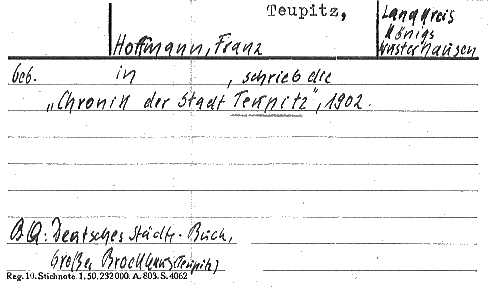 Teupitz,
Landkreis
Königs
Wusterhausen
Hoffmann, Franz
geb. in , schrieb die
„Chronik der Stadt Teupitz", 1902.
BQ: Deutsches Städte-Buch,
Großer Brockhaus (Teupitz)
Reg. 19. Stichnote. 1. 50. 232000. A. 803. S. 4062